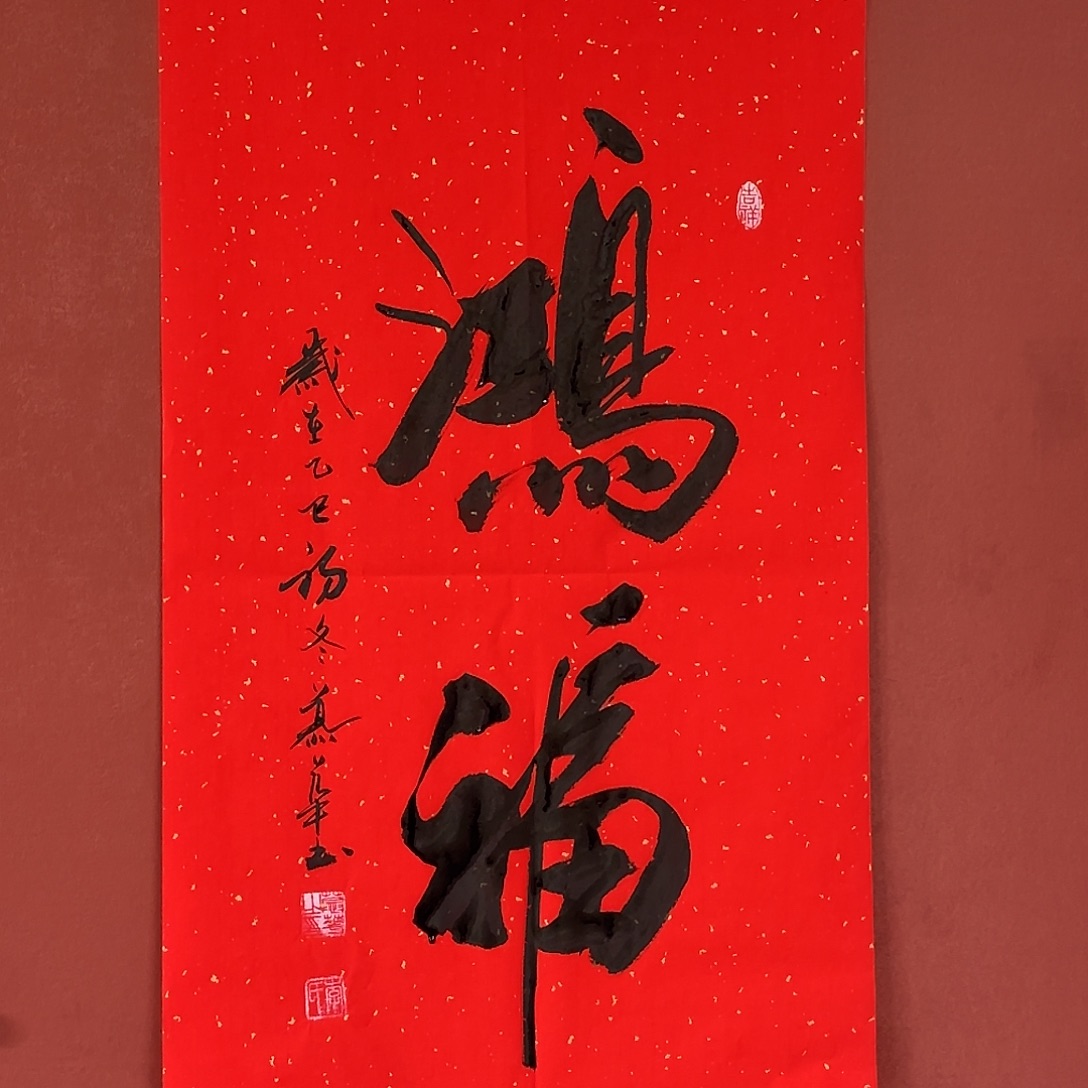 鴻福
歲在乙巳初冬慕華书